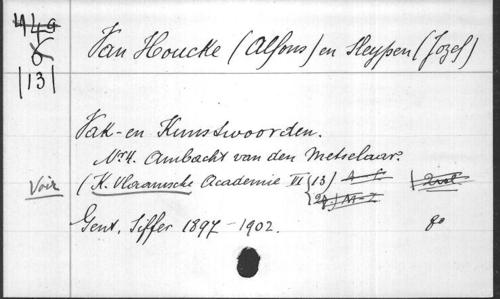 449
6
|13|
Van Houcke (Alfons) en Sleypen (Jozef)
Vak- en Kunstwoorden.
Nr 4. Ambacht van den Metselaar.
Voir (K. Vlaamsche Academie III (13) A-L
29) M-Z
Gent, Siffer 1897-1902. 8o